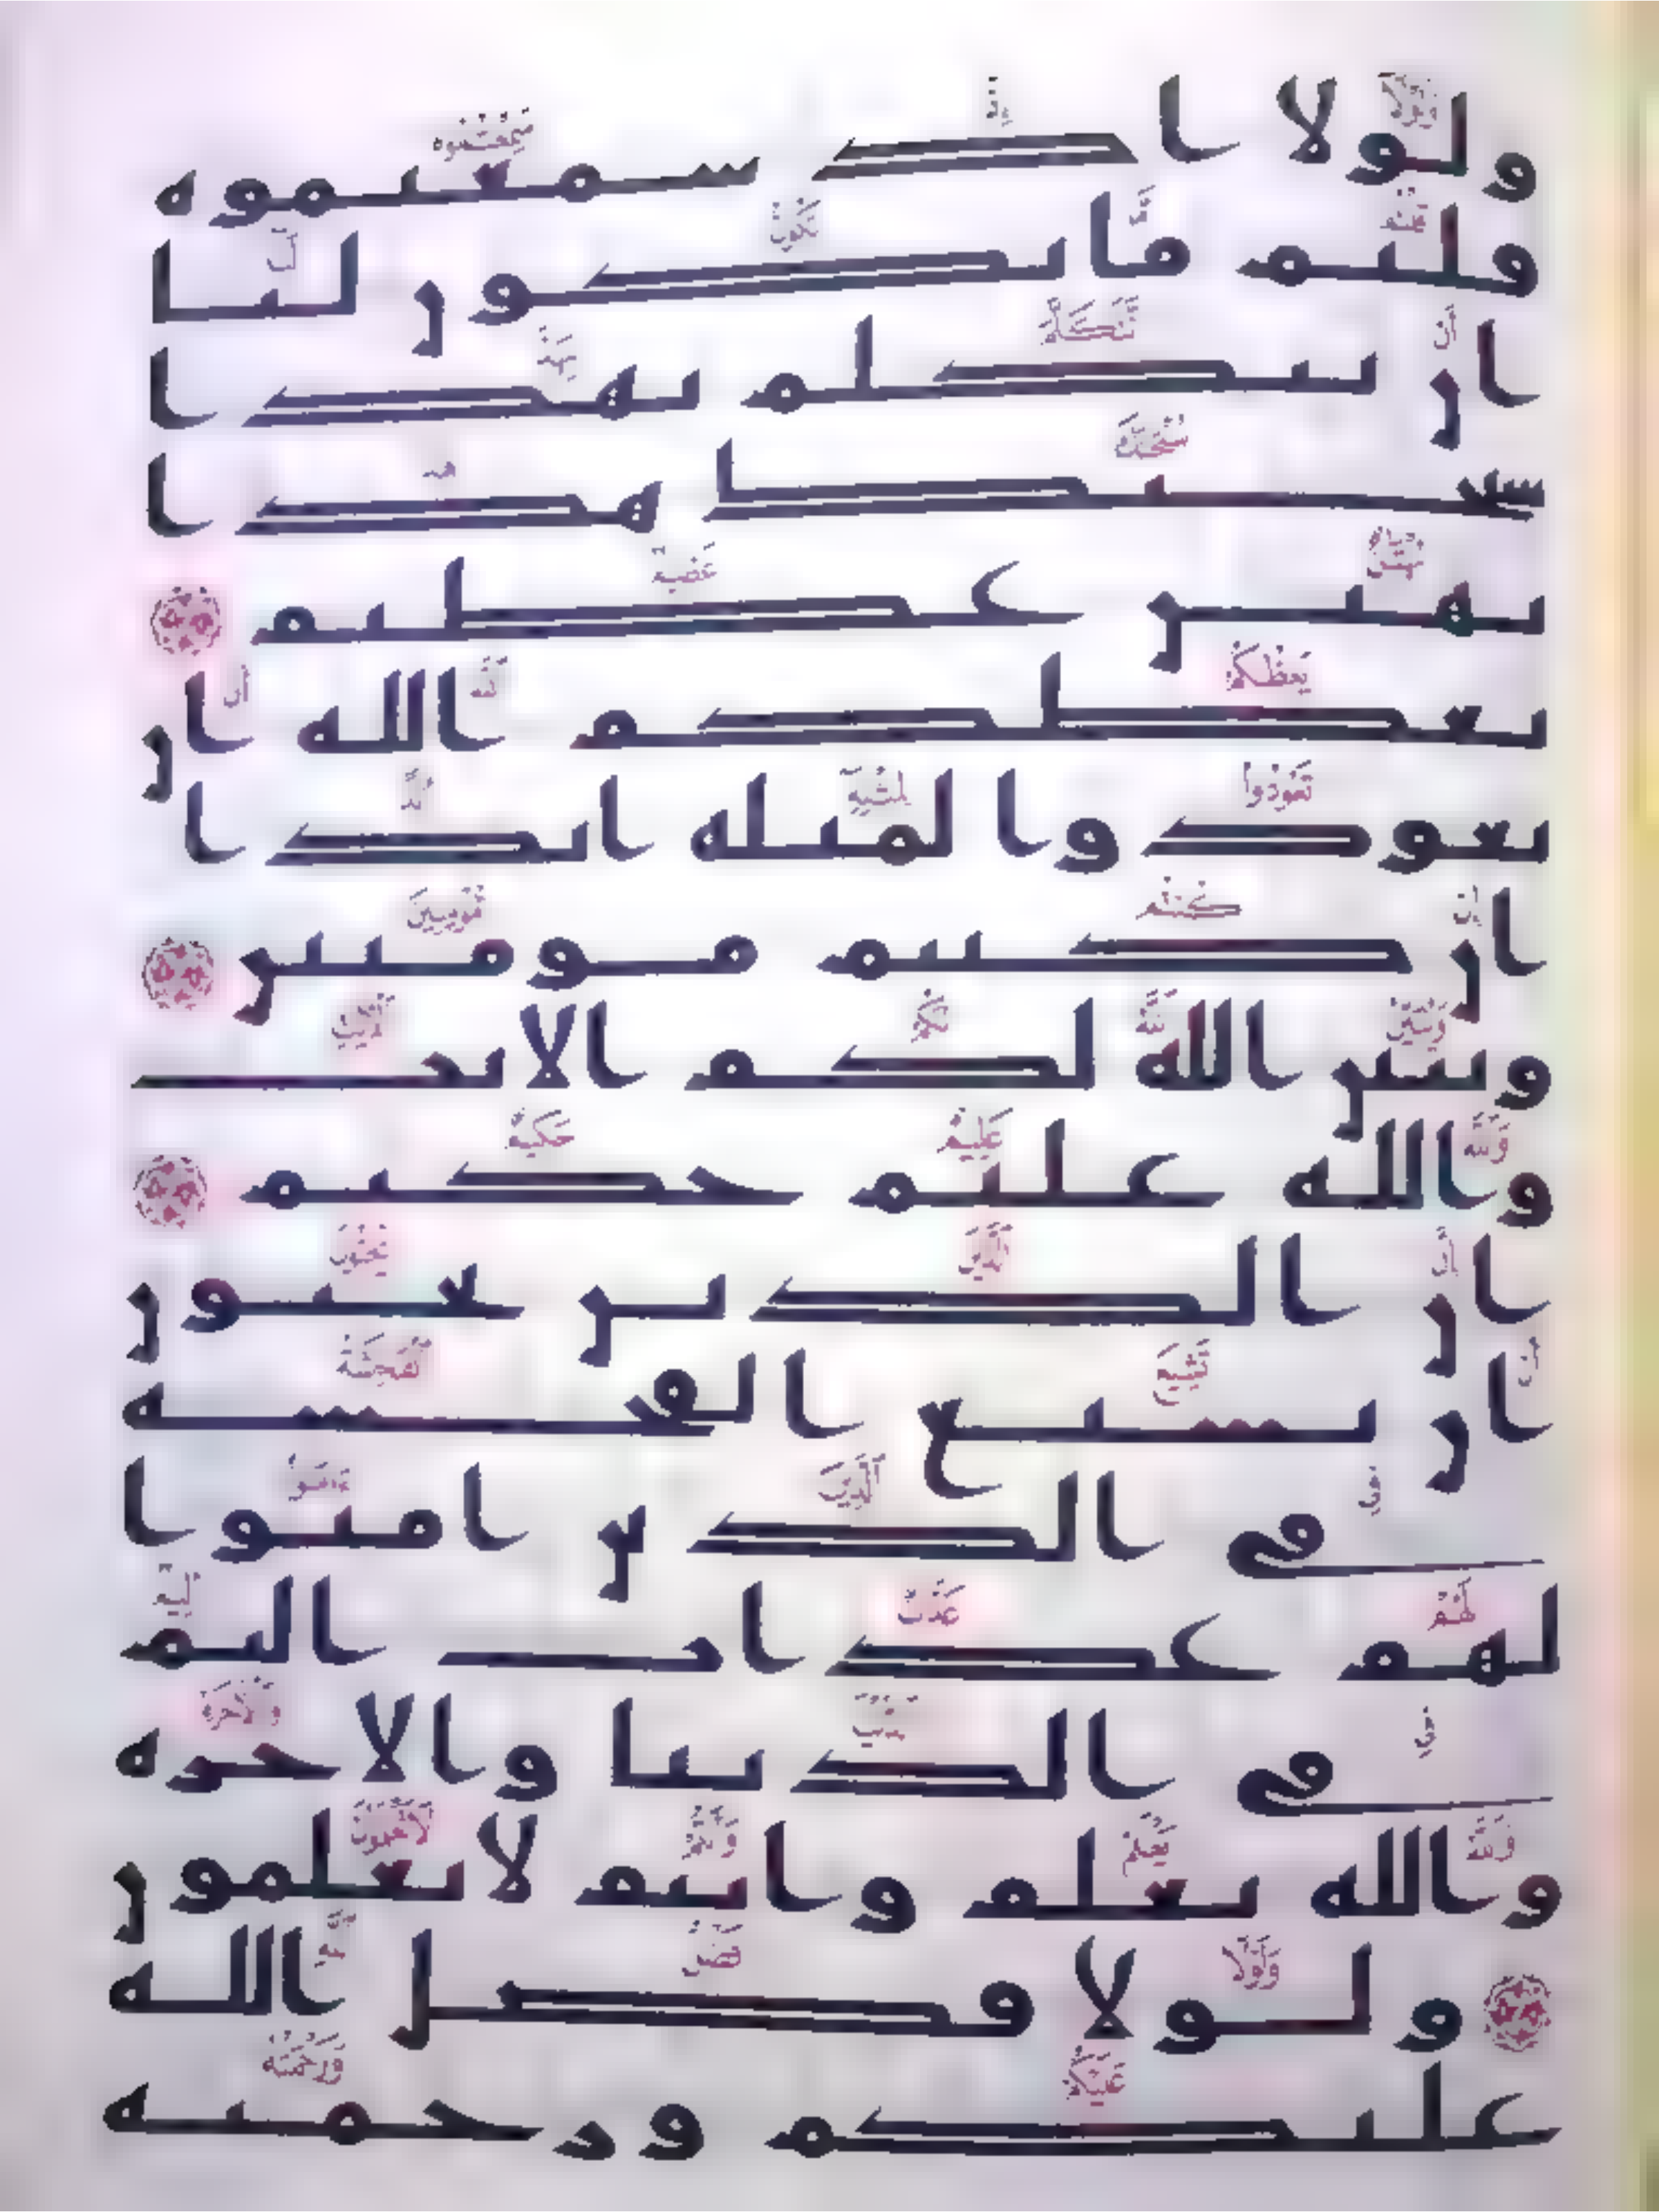 ولولا اذ سمعتموه
قلتم ما يكون لنا
ان نتكلم بهذا
سبحنك هذا
بهتن عظيم
يعظكم الله ان
تعودوا لمثله ابدا
ان كنتم مومنين
ويبين الله لكم الايت
والله عليم حكيم
ان الذين يحبون
ان تشيع الفحشه
في الذين امنوا
لهم عذاب اليم
في الدنيا والاخره
والله يعلم وانتم لا تعلمون
ولولا فضل الله
عليكم ورحمته